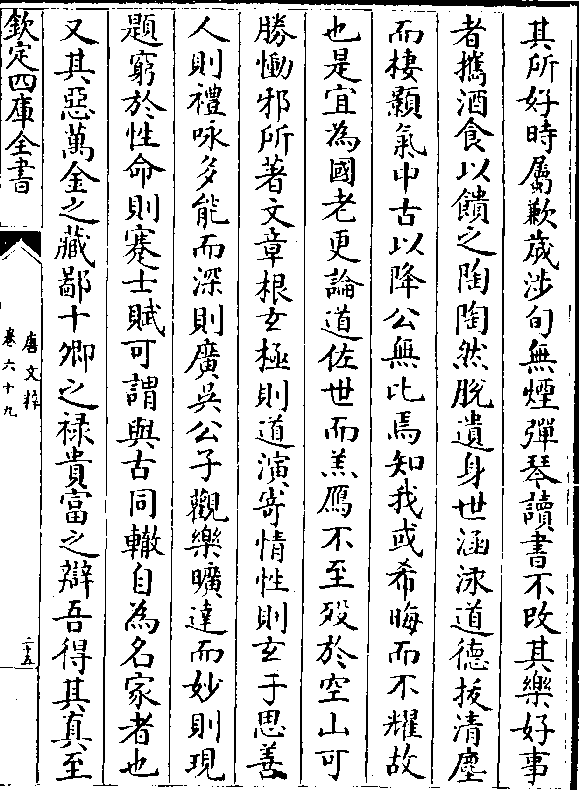 其所好時屬歉歲涉旬無煙彈琴讀書不改其樂好事
者攜酒食以饋之陶陶然脫遺身世涵泳道德拔清塵
而棲顥氣中古以降公無比焉知我或希晦而不耀故
也是宜為國老更論道佐世而羔鴈不至歿於空山可
勝慟邪所著文章根玄極則道演寄情性則玄于思善
人則禮咏多能而深則廣吳公子觀樂曠達而妙則現
題窮於性命則蹇士賦可謂與古同轍自為名家者也
又其惡萬金之藏鄙十卿之祿貴富之辯吾得其真至
欽定四庫全書
唐文粹
卷六十九
二十五